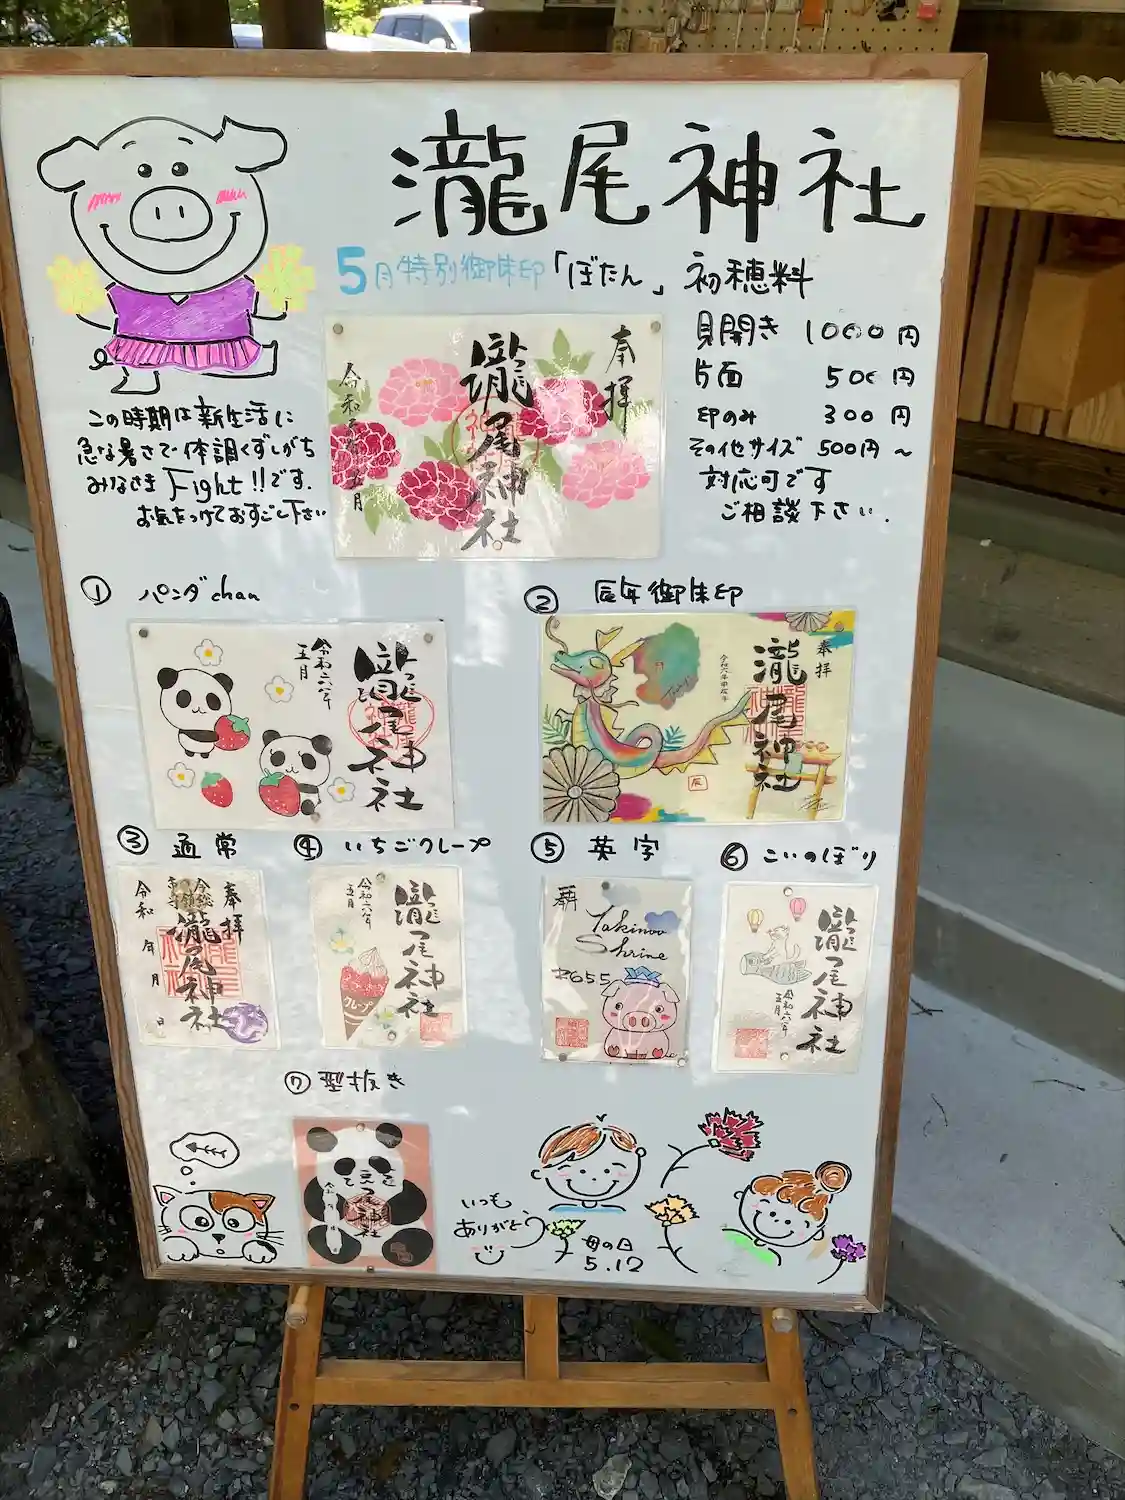 瀧尾神社
5月特別御朱印「ぼたん」初穂料
見開き 1000円
片面 500円
印のみ 300円
その他サイズ 500円～
対応可です
ご相談下さい.
この時期は新生活に
急な暑さで体調くずしがち
みなさま Fight!!です.
お気をつけておすごし下さい
奉拝
瀧尾神社
五月
① パンダchan
令和六年
五月
瀧尾神社
② 辰年御朱印
奉拝
瀧尾神社
令和六年甲辰年
辰
③ 通常
奉拝
瀧尾神社
令和 年 月 日
④ いちごクレープ
瀧尾神社
令和六年
五月
クレープ
⑤ 英字
奉拝
Takinoo
Shrine
⑥ こいのぼり
瀧尾神社
令和六年
五月
⑦ 型抜き
尾神社
いつも
ありがとう
母の日
5.12